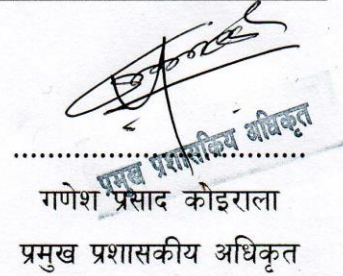 प्रमुख प्रशासकिय अधिकृत
गणेश प्रसाद कोइराला
प्रमुख प्रशासकीय अधिकृत